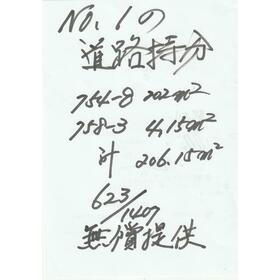 No.1の
道路持分
754-8 202m²
758-3 4.15m²
計 206.15m²
623/1407
無償提供